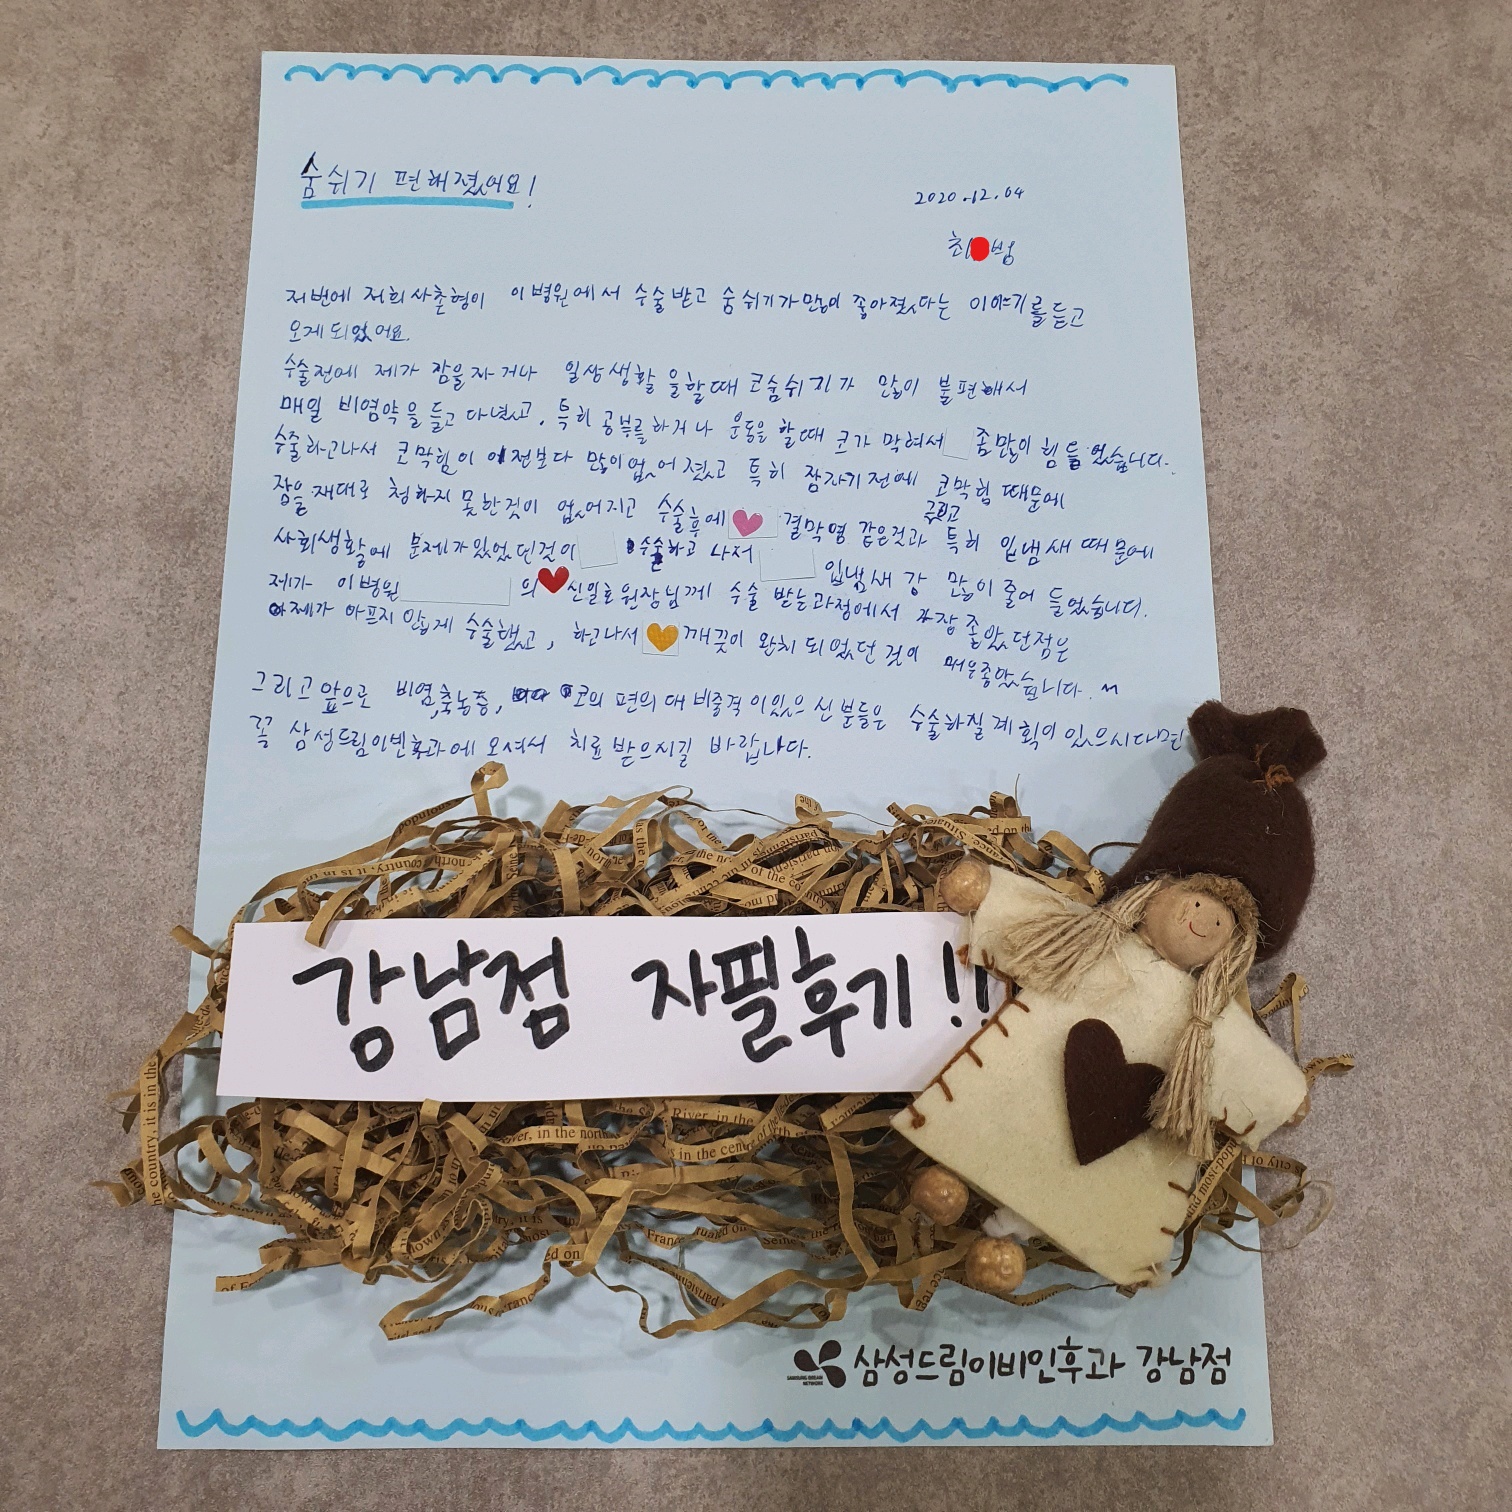 숨쉬기 편해졌어요!
2020.12.04
최 범
저번에 저희 사촌형이 이 병원에서 수술받고 숨쉬기가 많이 좋아졌다는 이야기를 듣고
오게 되었어요.
수술전에 제가 잠을 자거나 일상생활을 할때 코숨쉬기가 많이 불편해서
매일 비염약을 들고 다녔고, 특히 공부를 하거나 운동을 할때 코가 막혀서 좀 많이 힘들었습니다.
수술하고나서 코막힘이 이전보다 많이 없어졌고 특히 잠자기 전에 코막힘 때문에
잠을 재대로 청하지 못한것이 없어지고 수술후에 결막염 같은것과 그리고 특히 입냄새 때문에
사회생활에 문제가 있었던것이 수술하고 나서 입냄새 강 많이 줄어 들었습니다.
제가 이병원 의 신일호 원장님께 수술 받는과정에서 가장 좋았던점은
제가 아프지 안게 수술했고, 하고나서 깨끗이 완치 되었던 것이 매우좋았습니다.
그리고 앞으로 비염, 축농증, 코의 편의 대 비중격이있으신 분들은 수술하질 계획이 있으시다면
꼭 삼성드림이빈후과에 오셔서 치료 받으시길 바랍니다.
강남점 자필후기!!
SAMSUNG DREAM NETWORK
삼성드림이비인후과 강남점